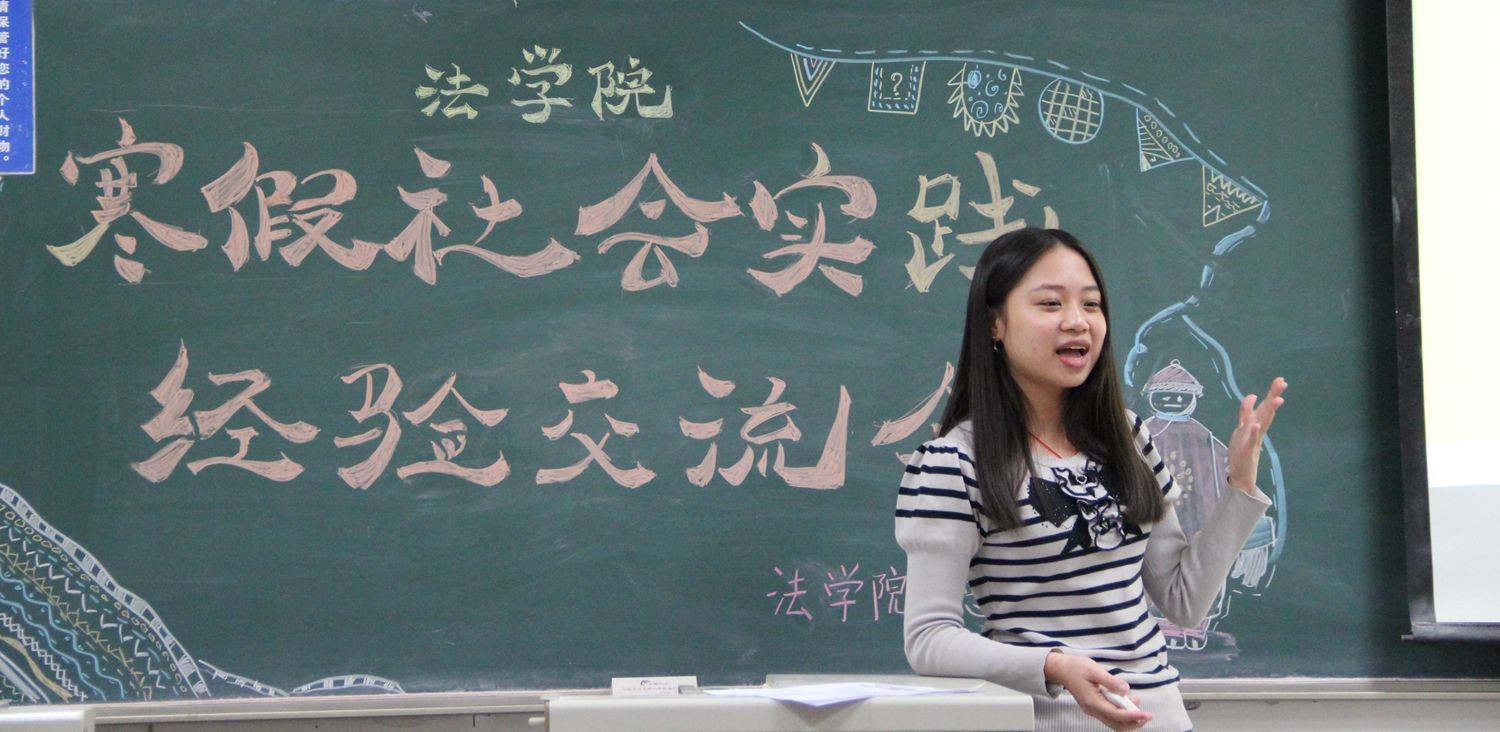 请保管好您的个人财物。
法学院
寒假社会实践
经验交流会
法学院